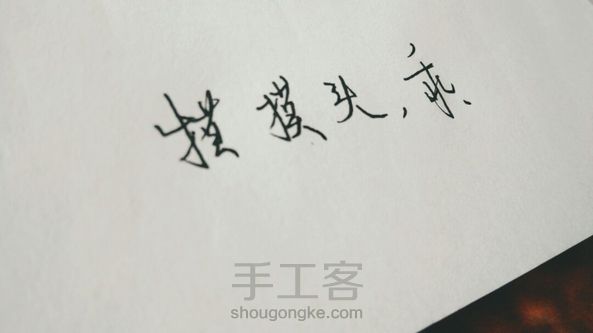 摸摸头,乖
手工客
shougongke.com